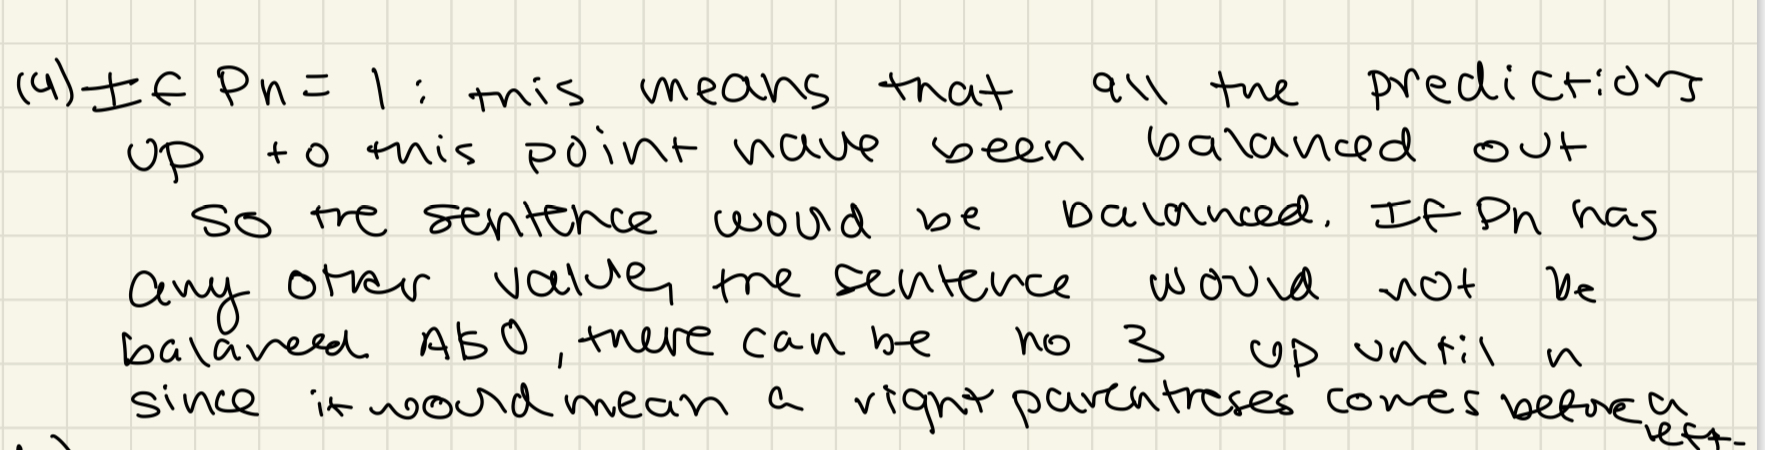 (4) If Pn = 1: this means that all the predictions
up to this point have been balanced out
so the sentence would be balanced. If Pn has
any other value, the sentence would not be
balanced. Also, there can be no 3 up until n
since it would mean a right parentheses comes before a
left.